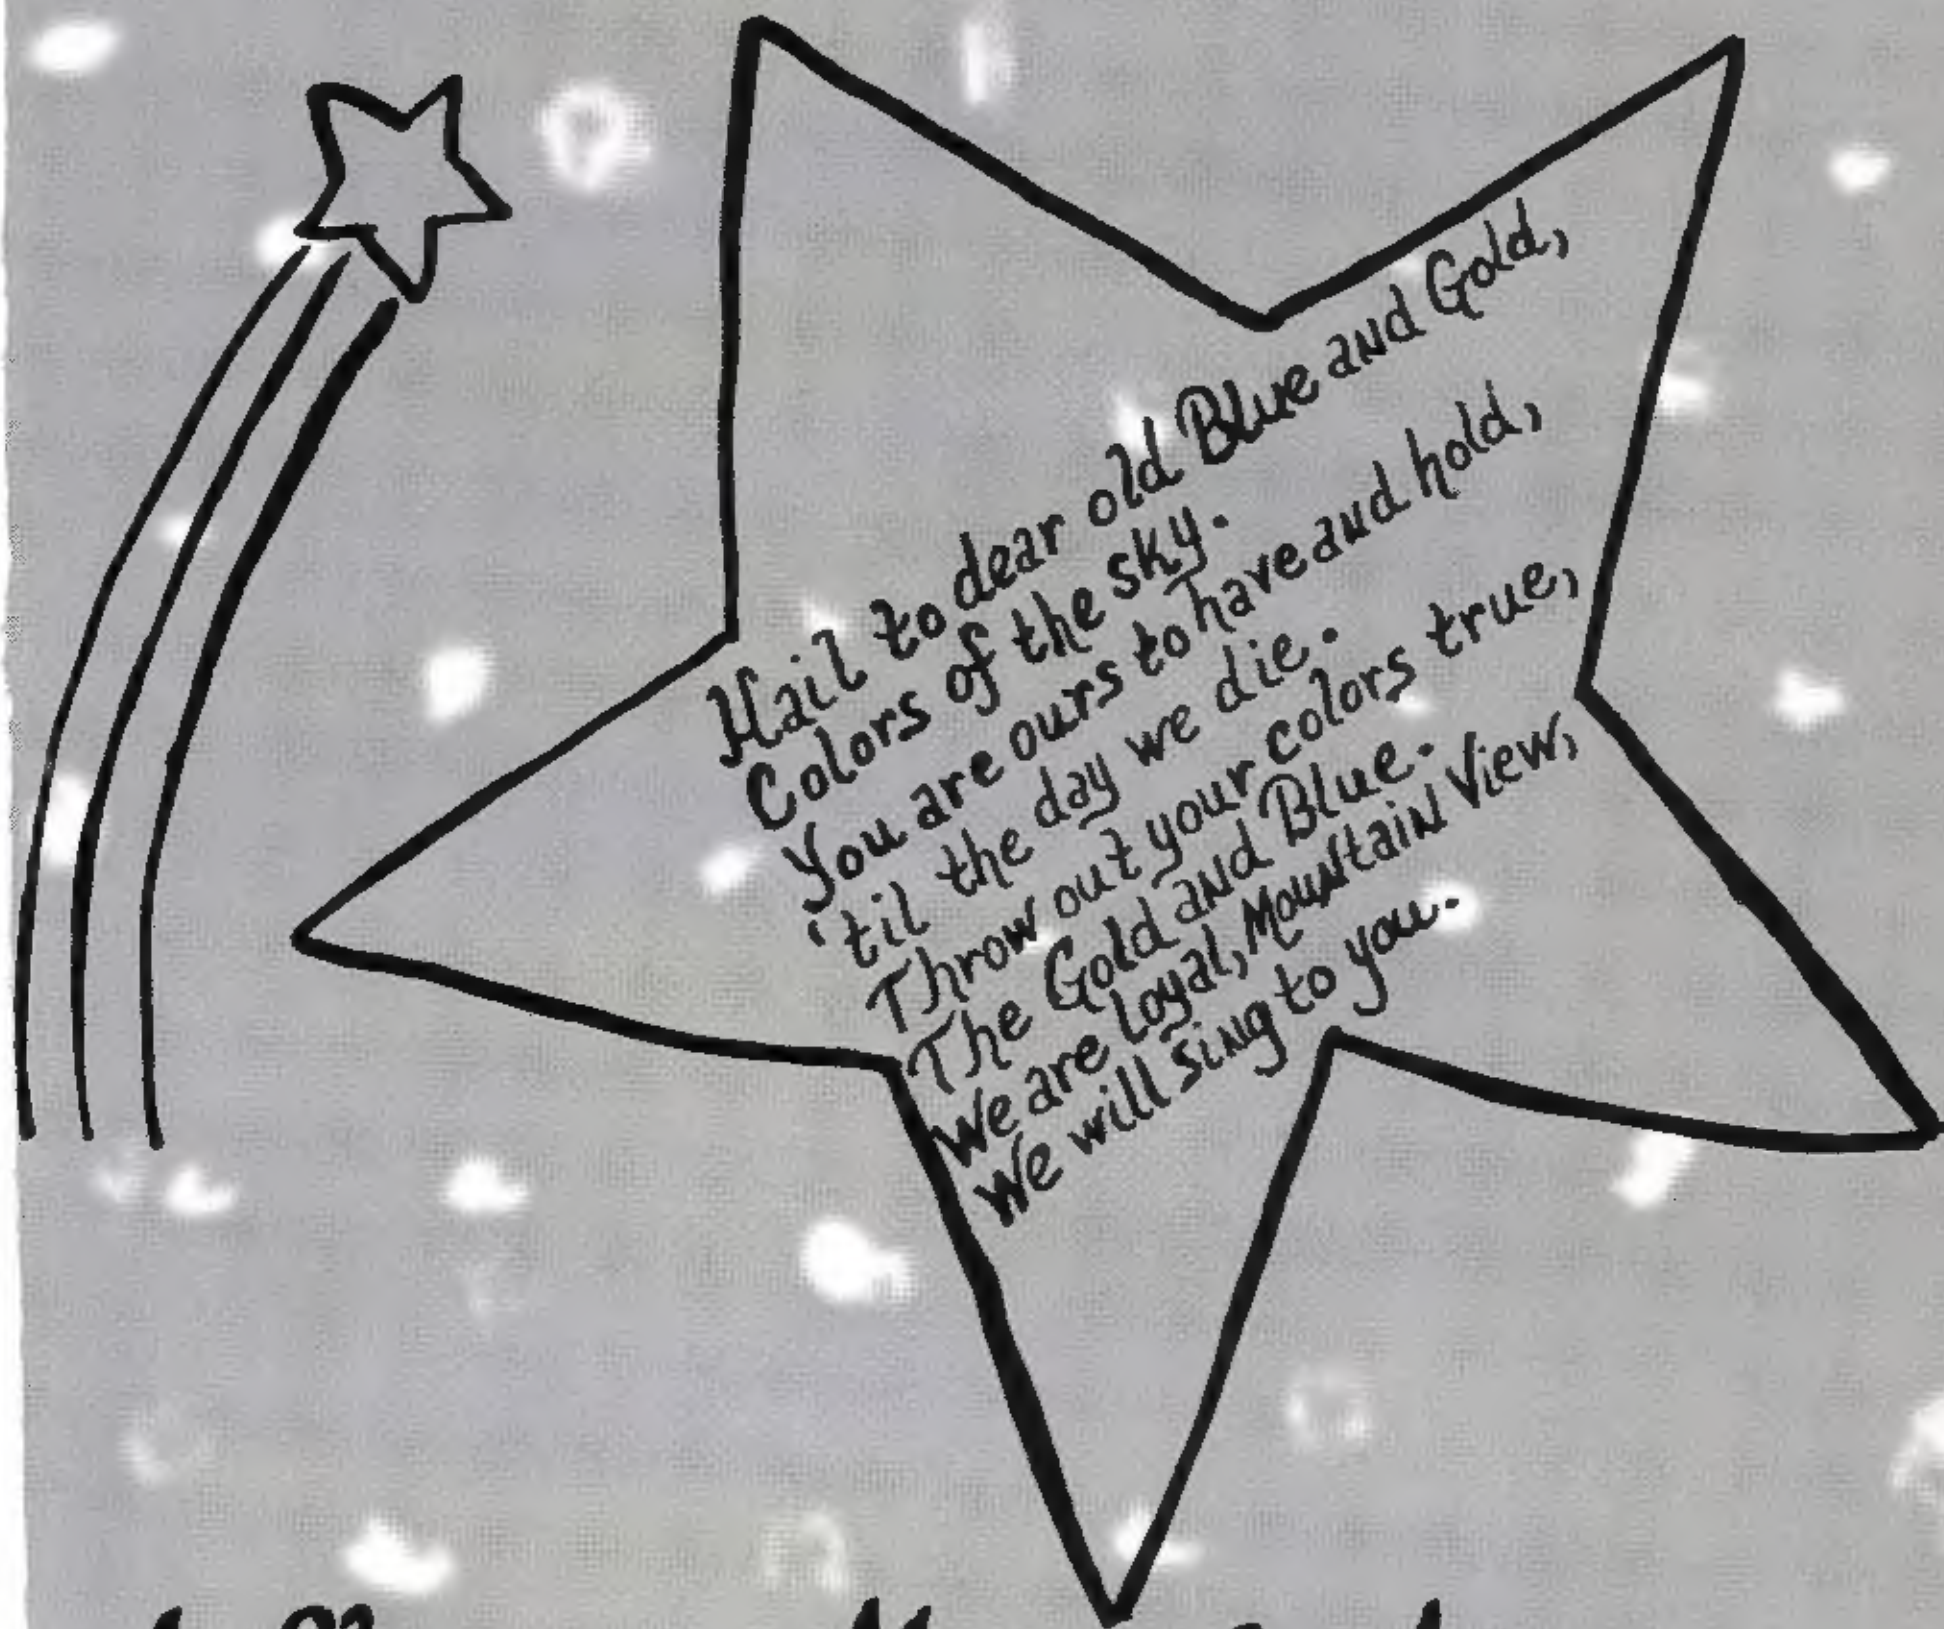 Hail to dear old Blue and Gold,
Colors of the sky.
You are ours to have and hold,
'til the day we die.
Throw out your colors true,
The Gold and Blue.
We are Loyal, Mountain View,
We will sing to you.